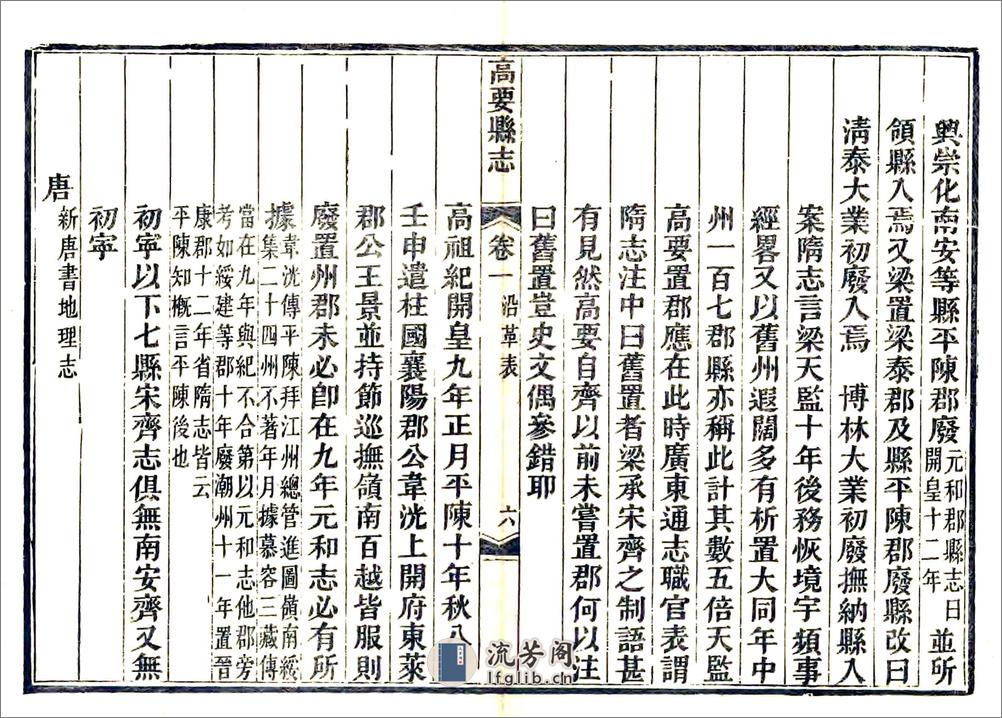 興崇化南安等縣平陳郡廢元和郡縣志曰開皇十二年並所
領縣入焉又梁置梁泰郡及縣平陳郡廢縣改曰
清泰大業初廢入焉　博林大業初廢撫納縣入
案隋志言梁天監十年後務恢境宇頻事
經畧又以舊州遐闊多有析置大同年中
州一百七郡縣亦稱此計其數五倍天監
高要置郡應在此時廣東通志職官表謂
隋志注中曰舊置者梁承宋齊之制語甚
有見然高要自齊以前未嘗置郡何以注
曰舊置豈史文偶參錯耶
高要縣志　卷一　沿革表　六
高祖紀開皇九年正月平陳十年秋八月
壬申遣柱國襄陽郡公韋洸上開府東萊
郡公王景並持節巡撫嶺南百越皆服則
廢置州郡未必卽在九年元和志必有所
據韋洸傳平陳拜江州總管進圖嶺南綏
集二十四州不著年月據慕容三藏傳
當在九年與紀不合第以元和志他郡旁
考如綏建等郡十年廢潮州十一年置晉
康郡十二年省隋志皆云
平陳知概言平陳後也
初寧以下七縣宋齊志俱無南安齊又無
初寧
唐新唐書地理志
流芳阁
lfglib.cn